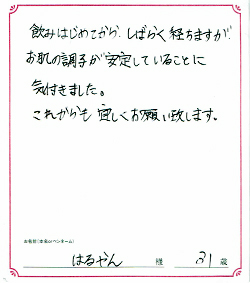 飲みはじめてから、しばらく経ちますが、
お肌の調子が安定していることに
気付きました。
これからも宜しくお願い致します。
お名前(本名orペンネーム)
はるやん 様 31 歳